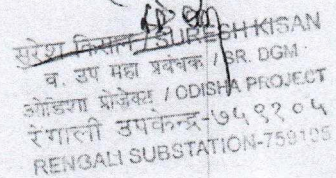 सुरेश किसान / SURESH KISAN
व. उप महा प्रबंधक / SR. DGM
ओडिशा प्रोजेक्ट / ODISHA PROJECT
रेंगाली उपकेन्द्र-७५९१०५
RENGALI SUBSTATION-759105